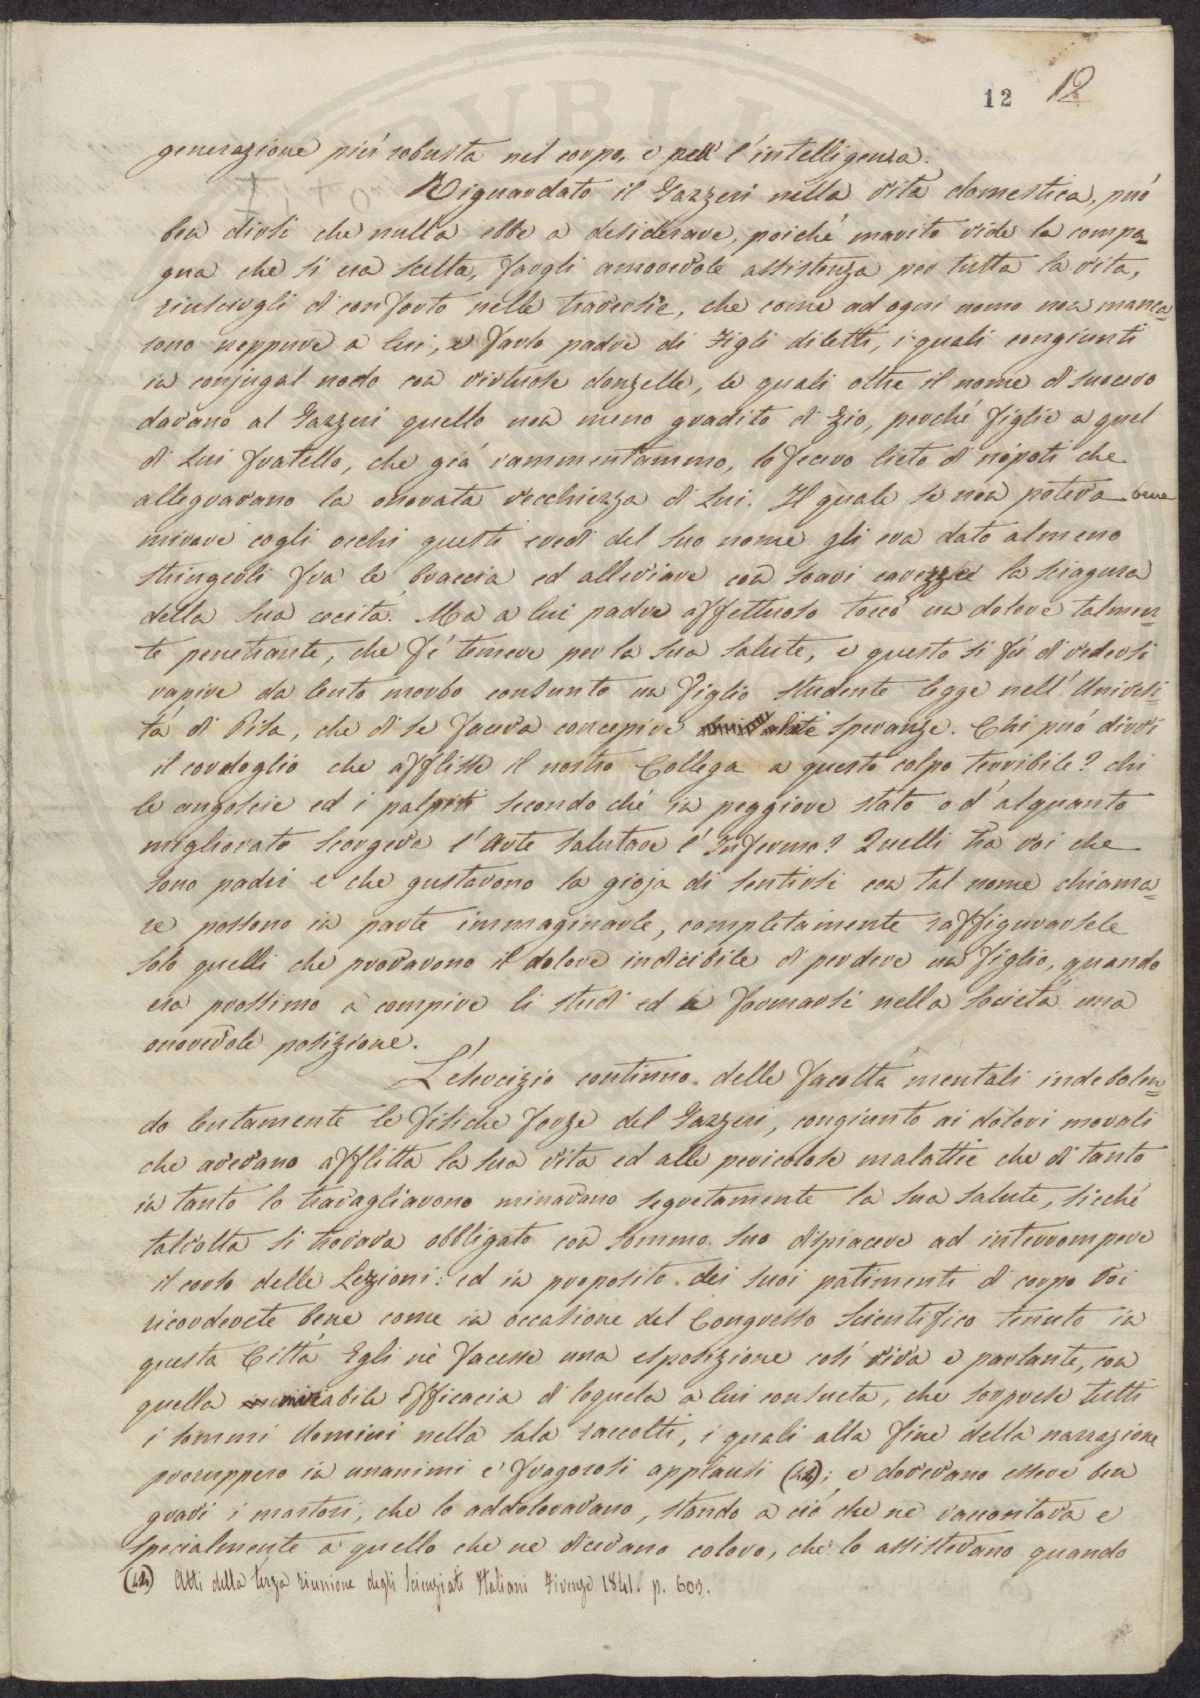 12 12
generazione più robusta nel corpo, e nell' l'intelligenza.
Riguardato il Gazzeri nella vita domestica, può
ben dirsi che nulla ebbe a desiderare, poichè marito vide la compa=
gna che si era scelta, fargli amorevole assistenza per tutta la vita,
riuscirgli di conforto nelle traversie, che come ad ogni uomo non manca=
rono neppure a lui, e farlo padre di Figli diletti, i quali congiunti
in conjugal nodo con virtuose donzelle, le quali oltre il nome di suocero
davano al Gazzeri quello non meno gradito di Zio, perchè figlie a quel
di Lui fratello, che già rammentammo, lo fecero lieto di nipoti che
allegravano la onorata vecchiezza di Lui. Il quale se non poteva bene
mirare cogli occhi questi eredi del suo nome gli era dato almeno
stringerli fra le braccia ed alleviare con soavi carezze la sciagura
della sua cecità. Ma a lui padre affettuoso toccò un dolore talmen=
te penetrante, che fè temere per la sua salute, e questo si fù di vedersi
rapire da lento morbo consunto un Figlio studente legge nell' Universi=
tà di Pisa, che di se faceva concepire alte speranze. Chi può dirvi
il cordoglio che afflisse il nostro Collega a questo colpo terribile? chi
le angoscie ed i palpiti secondo che in peggiore stato o d'alquanto
migliorato scorgeva l'Arte salutare l'Infermo? Quelli tra voi che
sono padri e che gustarono la gioja di sentirsi con tal nome chiama=
re possono in parte immaginarle, completamente raffigurarsele
solo quelli che provarono il dolore indicibile di perdere un figlio, quando
era prossimo a compire li studi ed a formarsi nella società una
onorevole posizione.
L'esercizio continuo delle facoltà mentali indebolen=
do lentamente le fisiche forze del Gazzeri, congiunto ai dolori morali
che avevano afflitta la sua vita ed alle pericolose malattie che di tanto
in tanto lo travagliavono minavano segretamente la sua salute, sicchè
talvolta si trovava obbligato con sommo suo dispiacere ad interrompere
il corso delle Lezioni: ed in proposito dei suoi patimenti di corpo Voi
ricorderete bene come in occasione del Congresso Scientifico tenuto in
questa Città Egli nè facesse una esposizione così viva e parlante, con
quella mirabile efficacia di loquela a lui consueta, che sorprese tutti
i sommi Uomini nella sala raccolti, i quali alla fine della narrazione
proruppero in unanimi e fragorosi applausi (42); e dovevano essere ben
gravi i martori, che lo addoloravano, stando a ciò che ne raccontava e
specialmente a quello che ne dicevano coloro, che lo assistevano quando
(42) Atti della terza riunione degli Scienziati Italiani Firenze 1841. p. 605.